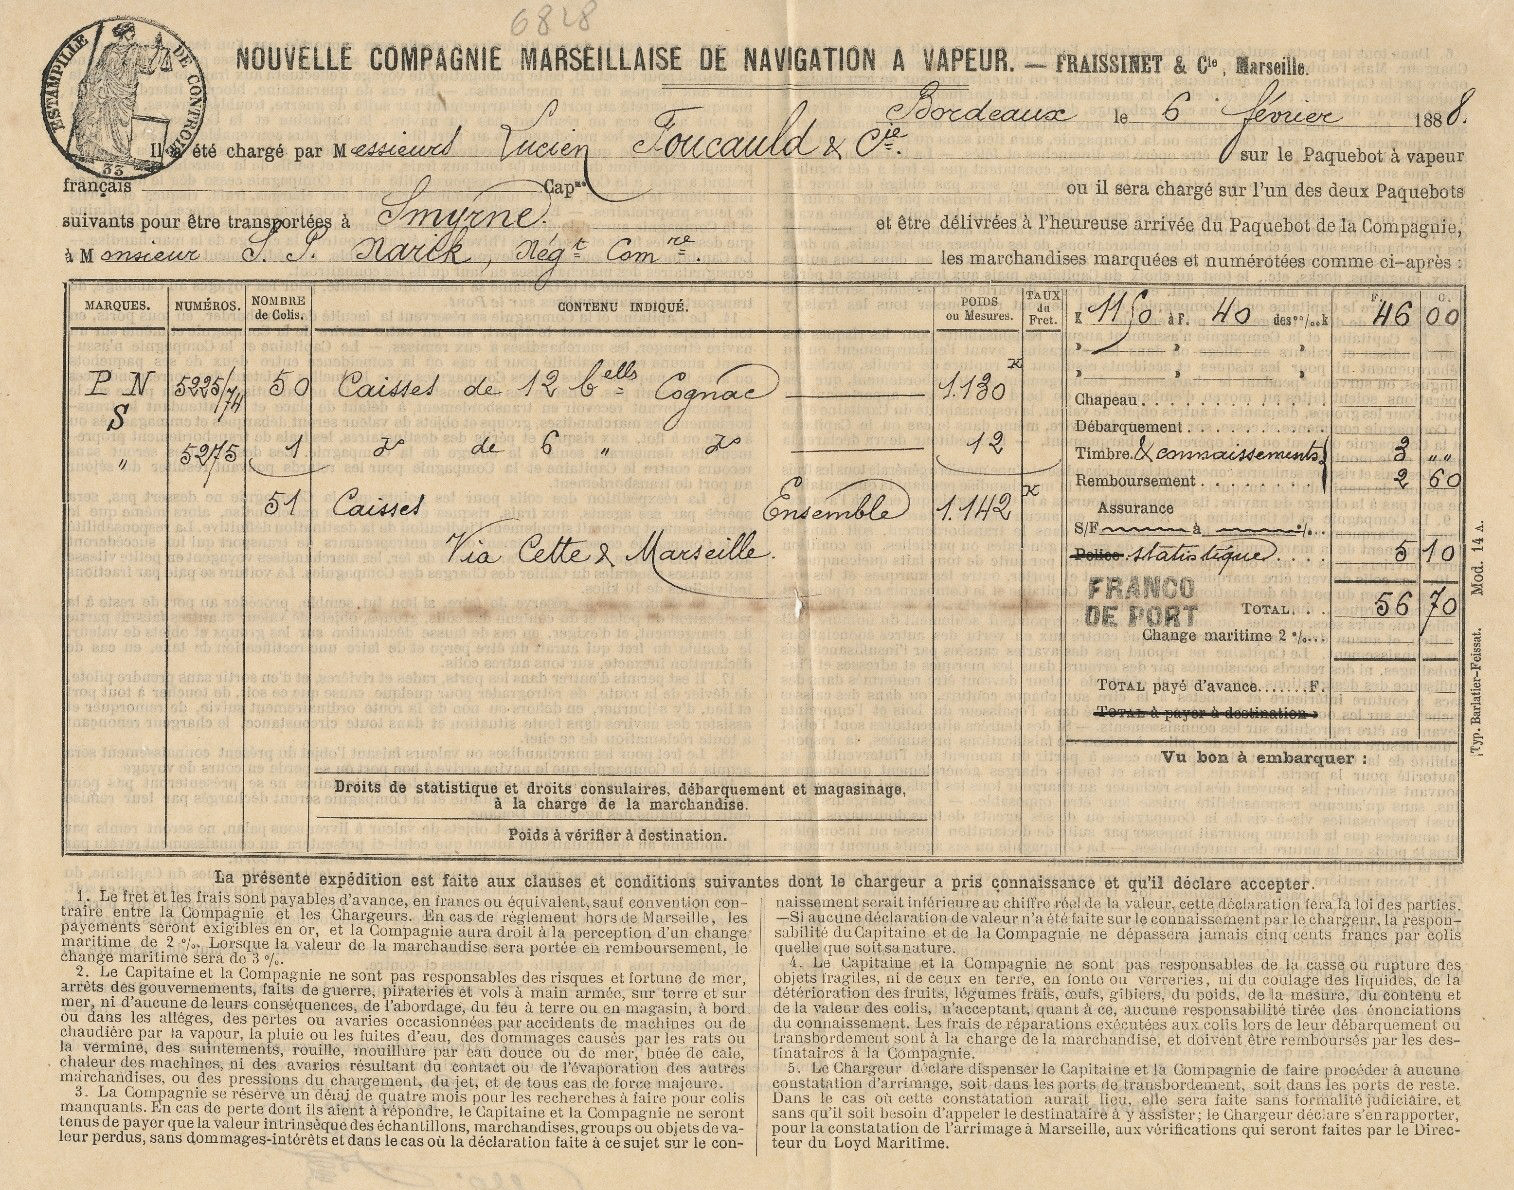 6828
ESTAMPILLE DE CONTROLE
33
NOUVELLE COMPAGNIE MARSEILLAISE DE NAVIGATION A VAPEUR. — FRAISSINET & Cie, Marseille.
Bordeaux le 6 février 1888.
Il a été chargé par Messieurs Lucien Foucauld & Cie. sur le Paquebot à vapeur
français Cap.ne ou il sera chargé sur l'un des deux Paquebots
suivants pour être transportées à Smyrne. et être délivrées à l'heureuse arrivée du Paquebot de la Compagnie,
à Monsieur S. P. Narik, Négt Comre. les marchandises marquées et numérotées comme ci-après :
MARQUES. NUMÉROS. NOMBRE de Colis. CONTENU INDIQUÉ. POIDS ou Mesures. TAUX du Fret.
P N S 5225/74 50 Caisses de 12 bells Cognac 1.130 K
" 5275 1 do de 6 " do 12
51 Caisses Ensemble 1.142 K
Via Cette & Marseille.
Droits de statistique et droits consulaires, débarquement et magasinage,
à la charge de la marchandise.
Poids à vérifier à destination.
F. C.
K 1150 à F. 40 des %₀ k 46 00
» » »
» » »
Chapeau
Débarquement
Timbre. & connaissements 3 "
Remboursement 2 60
Assurance
S/F à %
Police statistique 5 10
FRANCO
DE PORT
TOTAL 56 70
Change maritime 2 %
TOTAL payé d'avance.......F.
TOTAL à payer à destination
Vu bon à embarquer :
Typ. Barlatier-Feissat. Mod. 14 A.
La présente expédition est faite aux clauses et conditions suivantes dont le chargeur a pris connaissance et qu'il déclare accepter.
1. Le fret et les frais sont payables d'avance, en francs ou équivalent, sauf convention con-
traire entre la Compagnie et les Chargeurs. En cas de règlement hors de Marseille, les
payements seront exigibles en or, et la Compagnie aura droit à la perception d'un change
maritime de 2 %. Lorsque la valeur de la marchandise sera portée en remboursement, le
change maritime sera de 3 %.
2. Le Capitaine et la Compagnie ne sont pas responsables des risques et fortune de mer,
arrêts des gouvernements, faits de guerre, pirateries et vols à main armée, sur terre et sur
mer, ni d'aucune de leurs conséquences, de l'abordage, du feu à terre ou en magasin, à bord
ou dans les allèges, des pertes ou avaries occasionnées par accidents de machines ou de
chaudière par la vapeur, la pluie ou les fuites d'eau, des dommages causés par les rats ou
la vermine, des suintements, rouille, mouillure par eau douce ou de mer, buée de cale,
chaleur des machines, ni des avaries résultant du contact ou de l'évaporation des autres
marchandises, ou des pressions du chargement, du jet, et de tous cas de force majeure.
3. La Compagnie se réserve un délai de quatre mois pour les recherches à faire pour colis
manquants. En cas de perte dont ils aient à répondre, le Capitaine et la Compagnie ne seront
tenus de payer que la valeur intrinsèque des échantillons, marchandises, groups ou objets de va-
leur perdus, sans dommages-intérêts et dans le cas où la déclaration faite à ce sujet sur le con-
naissement serait inférieure au chiffre réel de la valeur, cette déclaration fera la loi des parties.
—Si aucune déclaration de valeur n'a été faite sur le connaissement par le chargeur, la respon-
sabilité du Capitaine et de la Compagnie ne dépassera jamais cinq cents francs par colis
quelle que soit sa nature.
4. Le Capitaine et la Compagnie ne sont pas responsables de la casse ou rupture des
objets fragiles, ni de ceux en terre, en fonte ou verreries, ni du coulage des liquides, de la
détérioration des fruits, légumes frais, œufs, gibiers, du poids, de la mesure, du contenu et
de la valeur des colis, n'acceptant, quant à ce, aucune responsabilité tirée des énonciations
du connaissement. Les frais de réparations exécutées aux colis lors de leur débarquement ou
transbordement sont à la charge de la marchandise, et doivent être remboursés par les des-
tinataires à la Compagnie.
5. Le Chargeur déclare dispenser le Capitaine et la Compagnie de faire procéder à aucune
constatation d'arrimage, soit dans les ports de transbordement, soit dans les ports de reste.
Dans le cas où cette constatation aurait lieu, elle sera faite sans formalité judiciaire, et
sans qu'il soit besoin d'appeler le destinataire à y assister ; le Chargeur déclare s'en rapporter,
pour la constatation de l'arrimage à Marseille, aux vérifications qui seront faites par le Direc-
teur du Loyd Maritime.